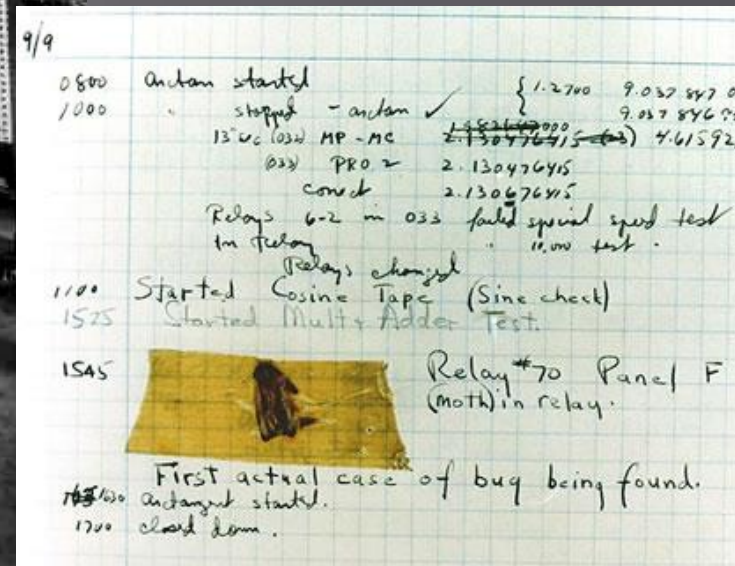 9/9
0800 arctan started { 1.2700 9.037 847 0
1000 " stopped - arctan ✓ 9.037 846 
13"uc (032) MP - MC 2.130476415 4.61592
(033) PRO 2 2.130476415
conect 2.130676415
Relays 6-2 in 033 failed special sped test
In Relay " 10,000 test .
Relays changed
1100 Started Cosine Tape (Sine check)
1525 Started Mult + Adder Test.
1545 Relay #70 Panel F
(moth) in relay.
First actual case of bug being found.
1630 arctangent started.
1700 closed down .